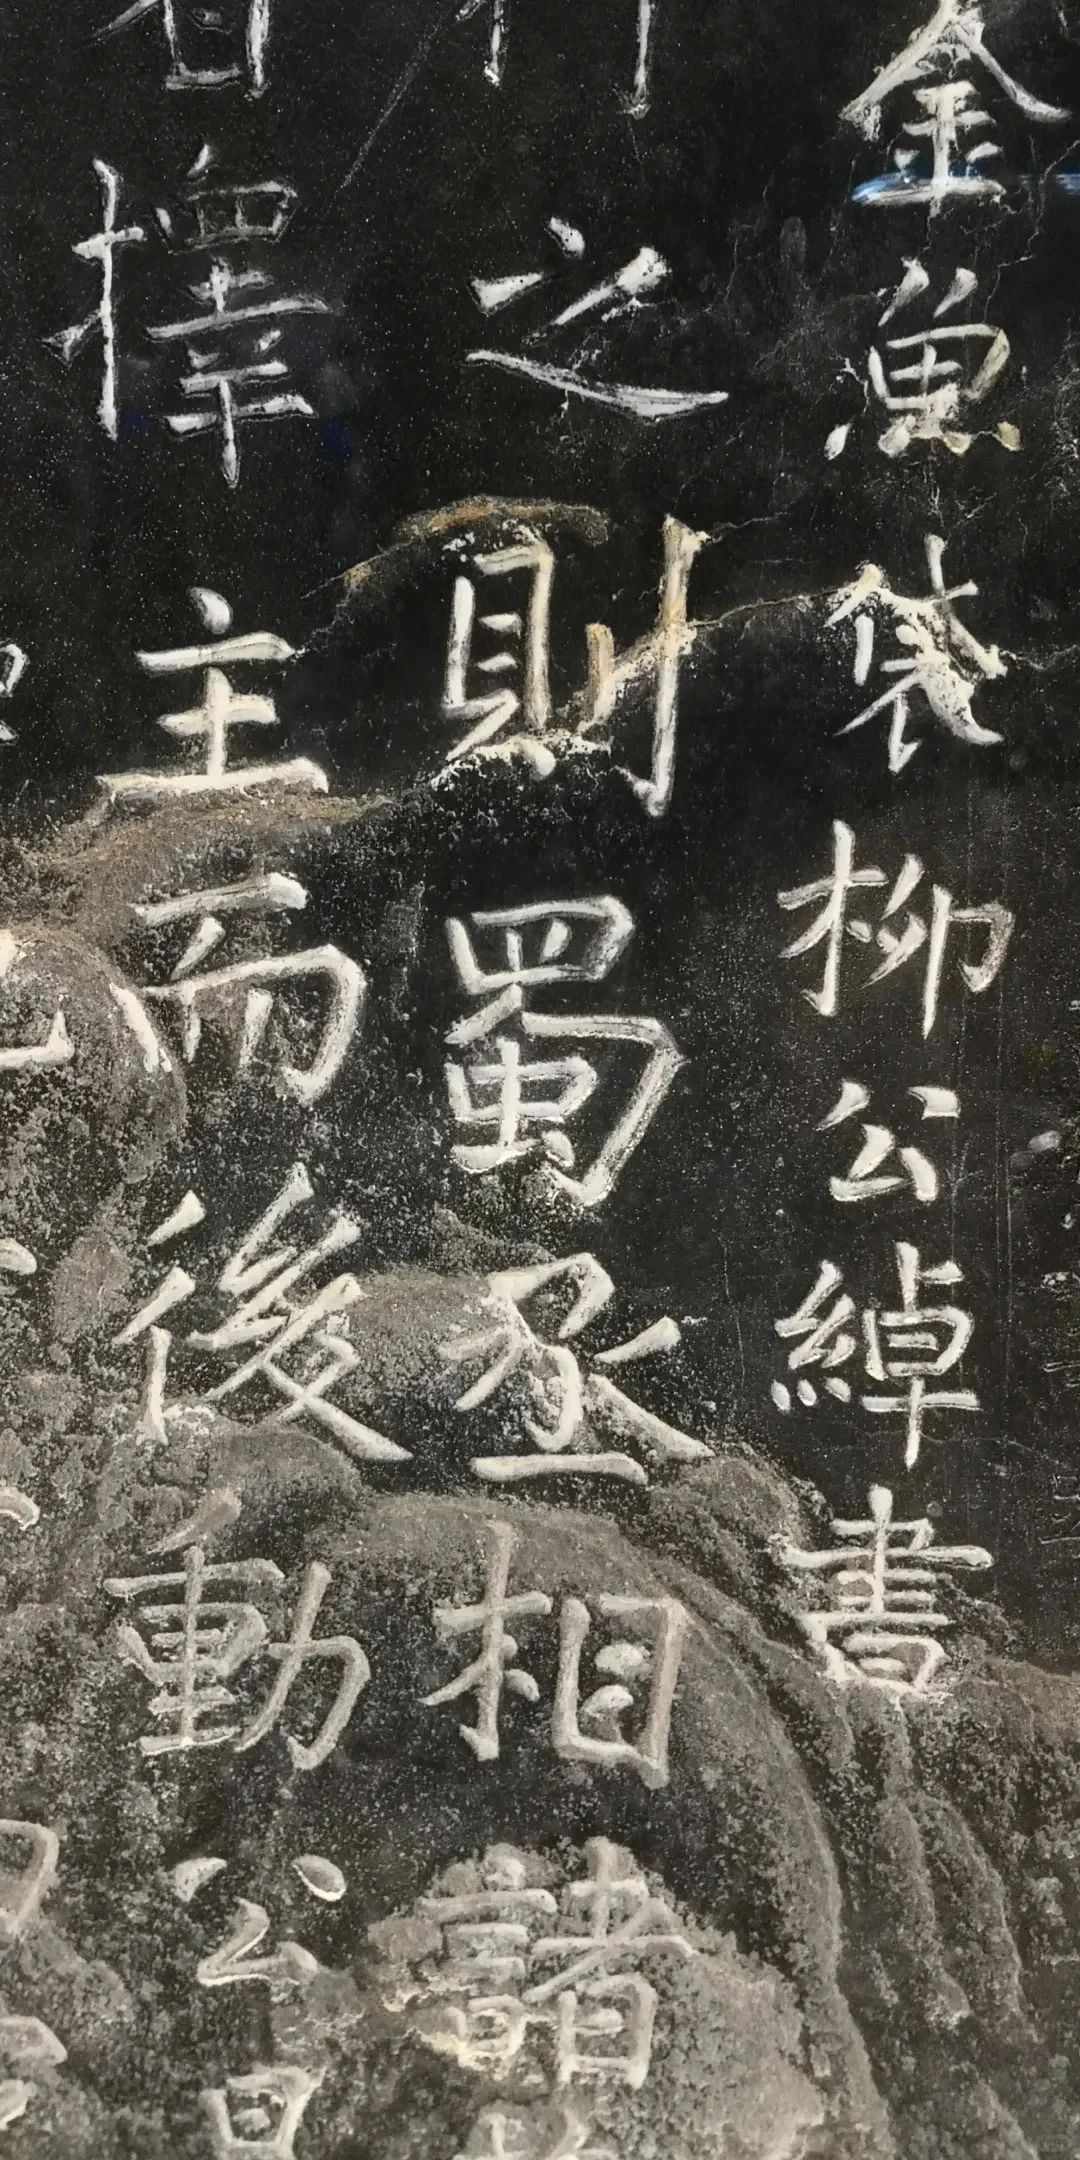 金魚袋柳公綽書
之則蜀丞相諸
擇主而後動公